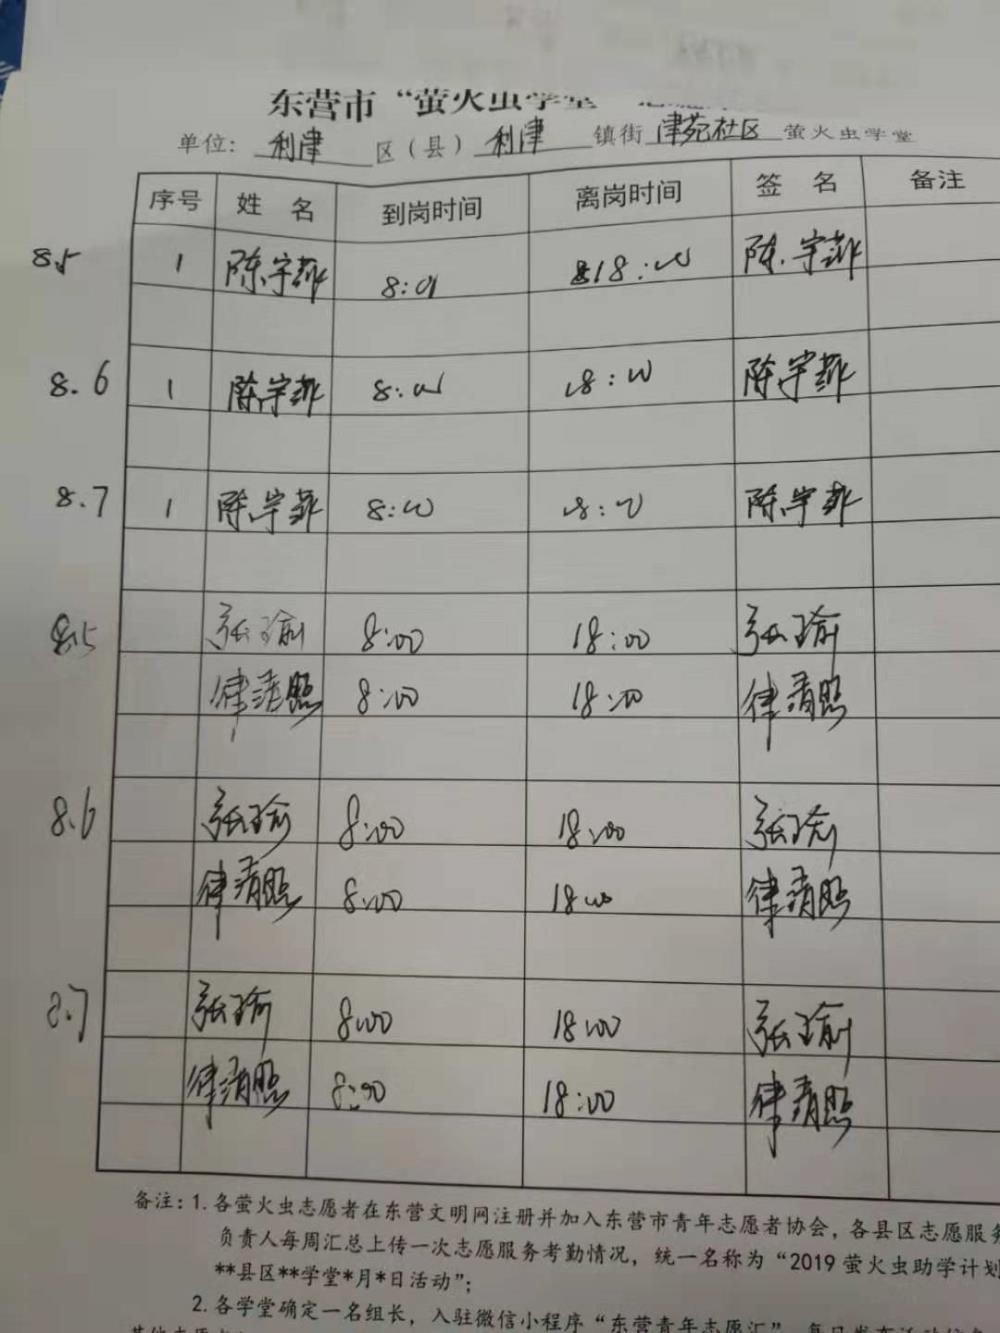 东营市“萤火虫学堂”
单位：利津区（县）利津镇街津苑社区萤火虫学堂
序号 姓名 到岗时间 离岗时间 签名 备注
8.5 1 陈宇菲 8:00 18:00 陈宇菲
8.6 1 陈宇菲 8:00 18:00 陈宇菲
8.7 1 陈宇菲 8:00 18:00 陈宇菲
8.5 张瑜 8:00 18:00 张瑜
律清照 8:00 18:00 律清照
8.6 张瑜 8:00 18:00 张瑜
律清照 8:00 18:00 律清照
8.7 张瑜 8:00 18:00 张瑜
律清照 8:00 18:00 律清照
备注：1. 各萤火虫志愿者在东营文明网注册并加入东营市青年志愿者协会，各县区志愿服务
负责人每周汇总上传一次志愿服务考勤情况，统一名称为“2019萤火虫助学计划
**县区**学堂*月*日活动”；
2. 各学堂确定一名组长，入驻微信小程序“东营青年志愿汇”，每日发布活动信息